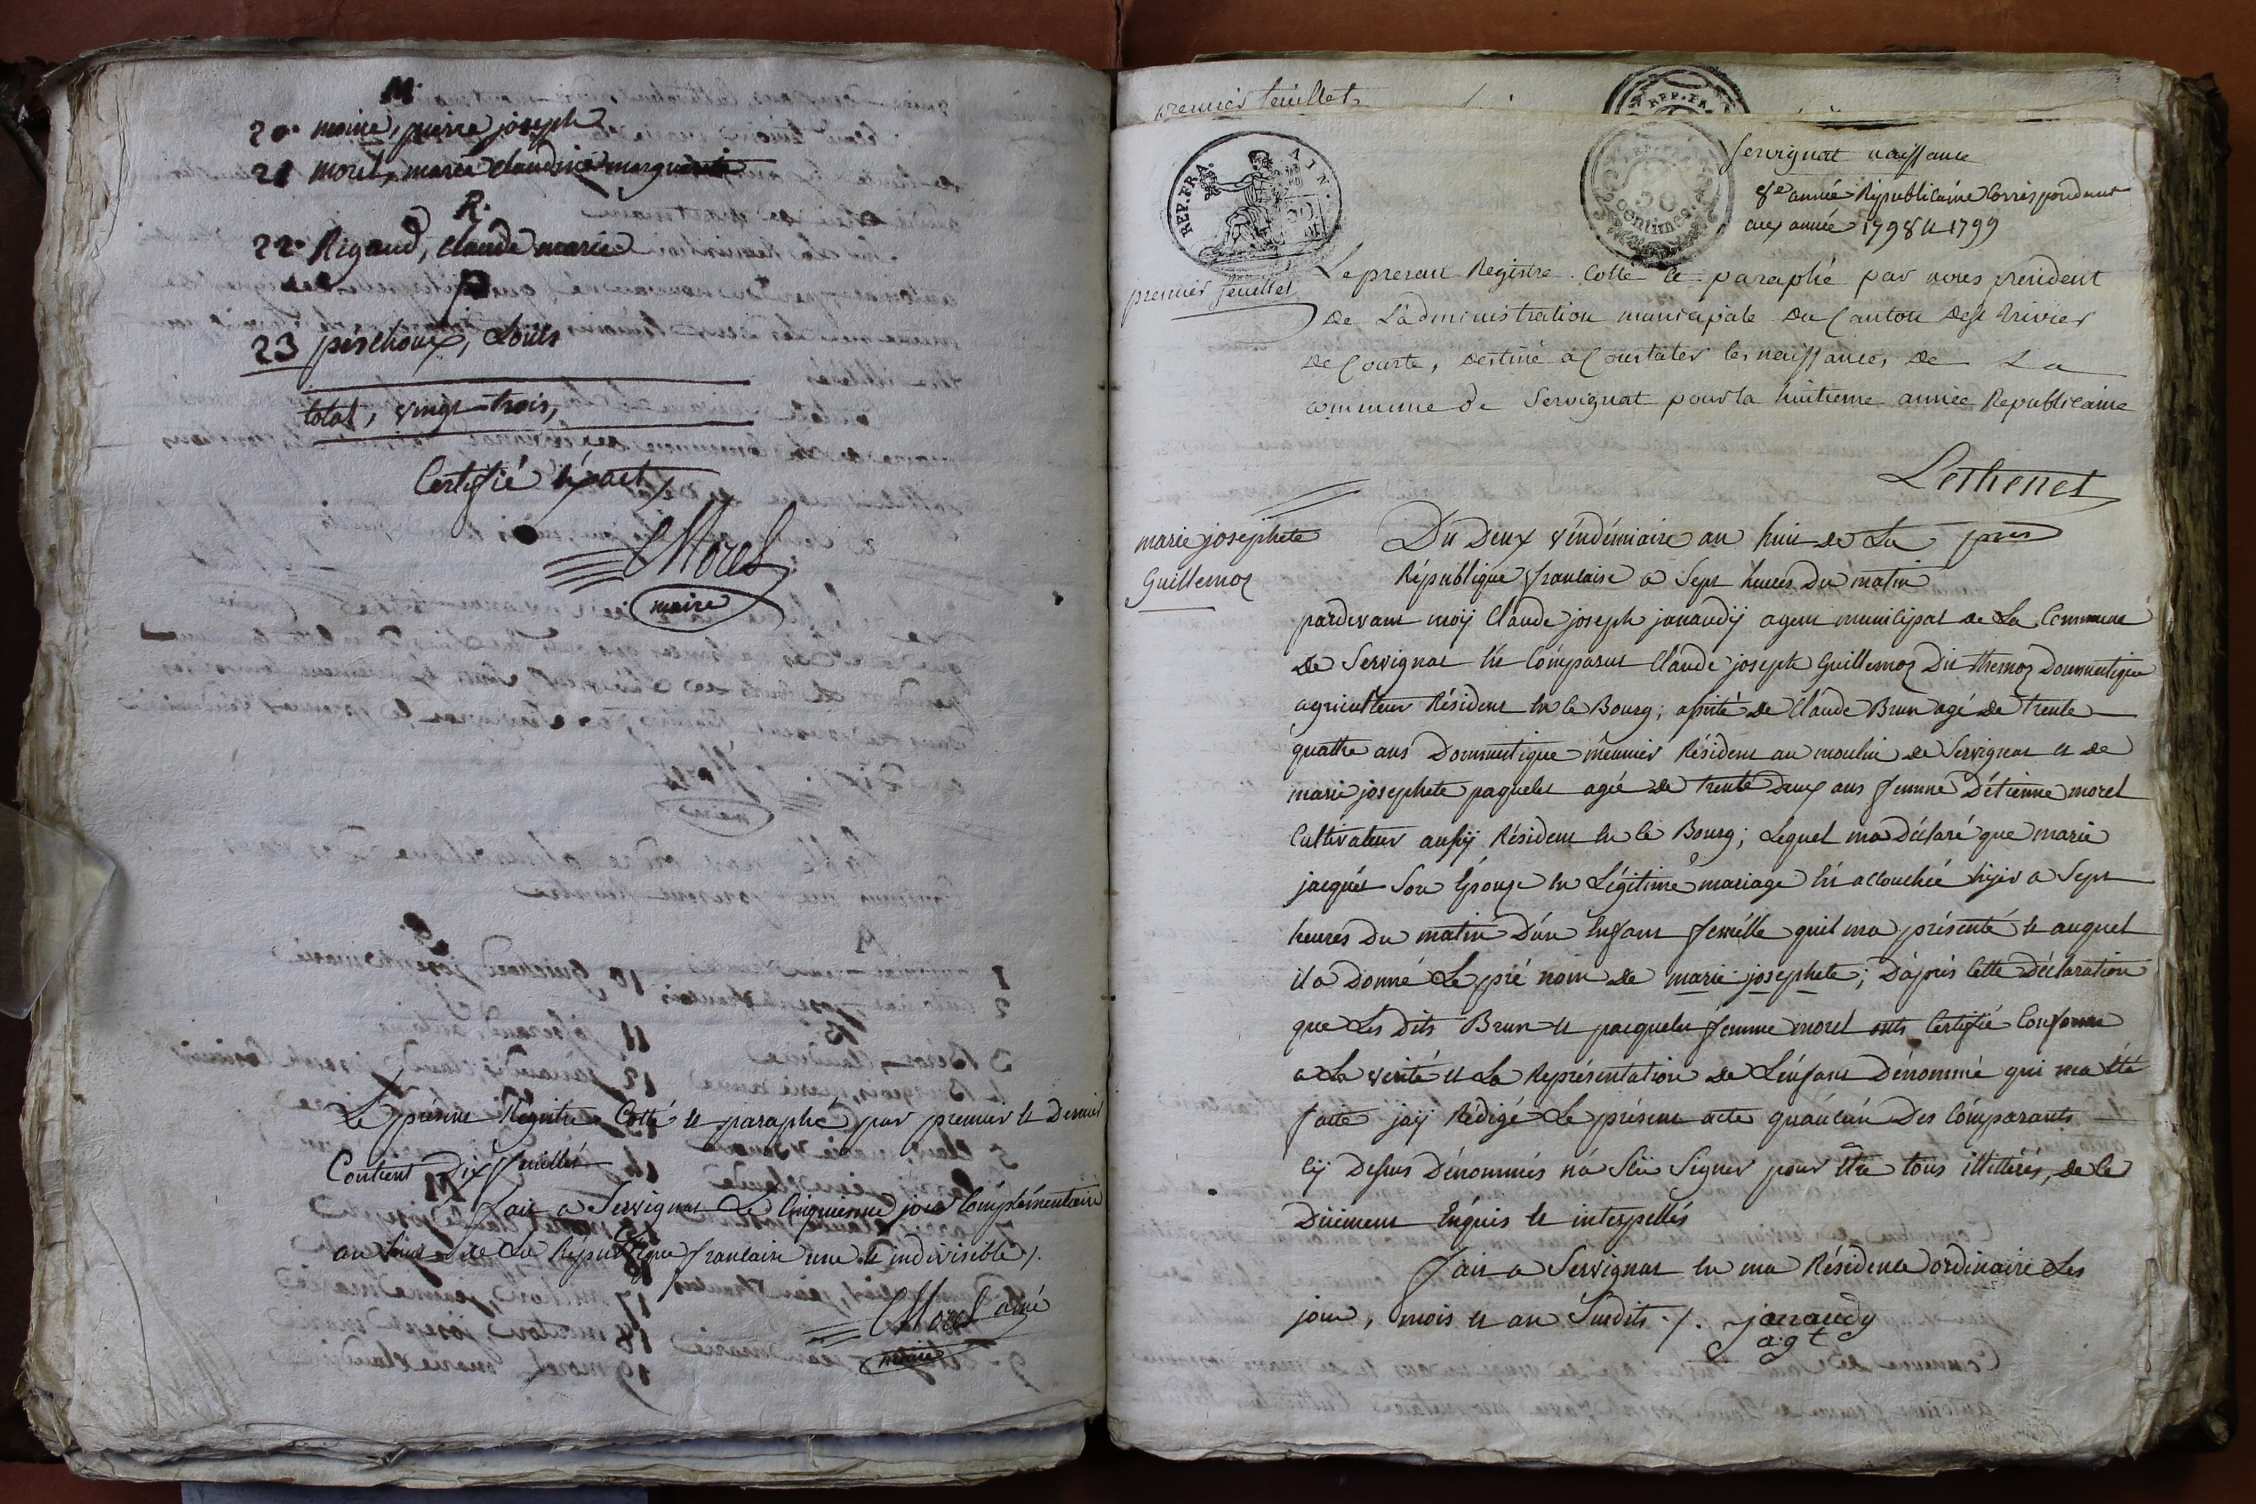 M.
20. moine, pierre joseph
21 morel, marie claudine marguerite
R.
22. Rigaud, claude marie
P
23 péschoux, Louis
total, vingt-trois,
Certifié éxact,
CMorel
maire
Le présent Régistre Cotté et paraphé par premier et dernier
Contient dix feuillets
fait a Servignat Le Cinquieme jour Complémentaire
an huit de La République francaise une et indivisible /.
CMorel ainé
maire
premier feuillet
REP. FRA.
REP. FRA. AIN.
50
centimes
Servignat naissance
8e année Républicaine Correspondant
aux année 1798 et 1799
premier feuillet
Le present Registre Cotté et paraphé par nous president
de L'administration municipale du Canton de St Trivier
de Courte, destiné a Constater les naissances de La
commune de Servignat pour la huitieme année Republicaine
Lethenet
pres
marie josephete
Guillemoz
Du Deux véndémiaire an huit de La
République francaise a Sept heures du matin
pardevant moÿ Claude joseph janaudÿ agent municipal de La Commune
de Servignat Est Comparut Claude joseph Guillemoz Dit themoz Dommestique
agriculteur Résident En le Bourg; assisté de Claude Brun agé de trente
quattre ans Dommestique meunier Résident au moulin de Servignat et de
marie josephete paquelet agée de trente Deux ans femme D'étienne morel
Cultivateur aussÿ Résident En le Bourg; Lequel ma Déclaré que marie
jacquet Son Épouze En Légitime mariage Est accouchée hÿer a Sept
heures Du matin D'un Enfant femélle quil ma présenté et auquel
il a Donné Le pré nom de marie josephete; D'après Cette Déclaration
que Les dits Brun et pacquelet femme morel onts Certifié Conforme
a La vérité et La Représentation de L'énfant Dénommé qui ma été
faitte jaÿ Rédigé Le présent acte quáucún Des Cómparants
Cÿ Dessus Dénommés ná Scu Signer pour être tous illittérés, de Ce
Düement Enquis et interpellés
fait a Servignat En ma Résidence ordinaire Les
jour, mois et an Susdits ./. janaudy
agt